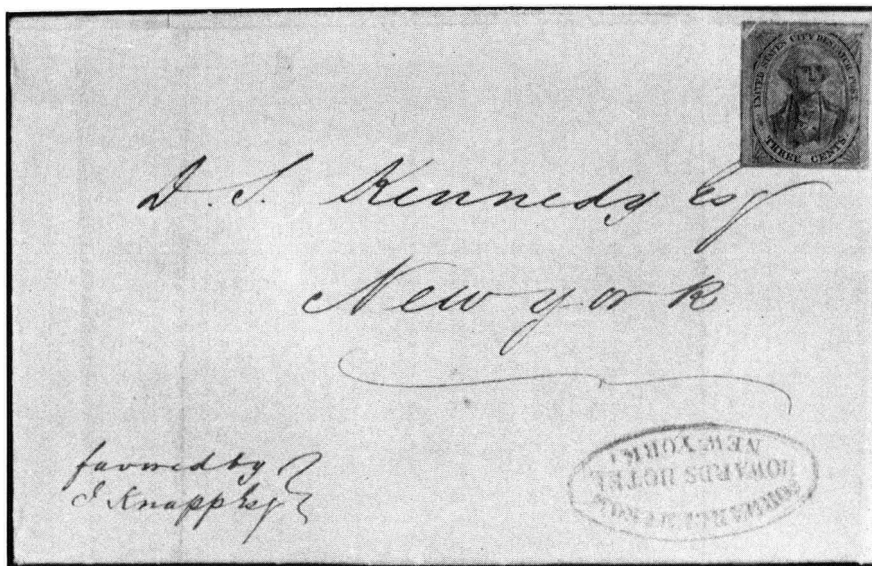 UNITED STATES CITY DESPATCH POST
THREE CENTS.
D. S. Kennedy Esq
New york
favored by
J Knapp Esq
FORWARDED FROM
HOWARDS HOTEL
NEW YORK